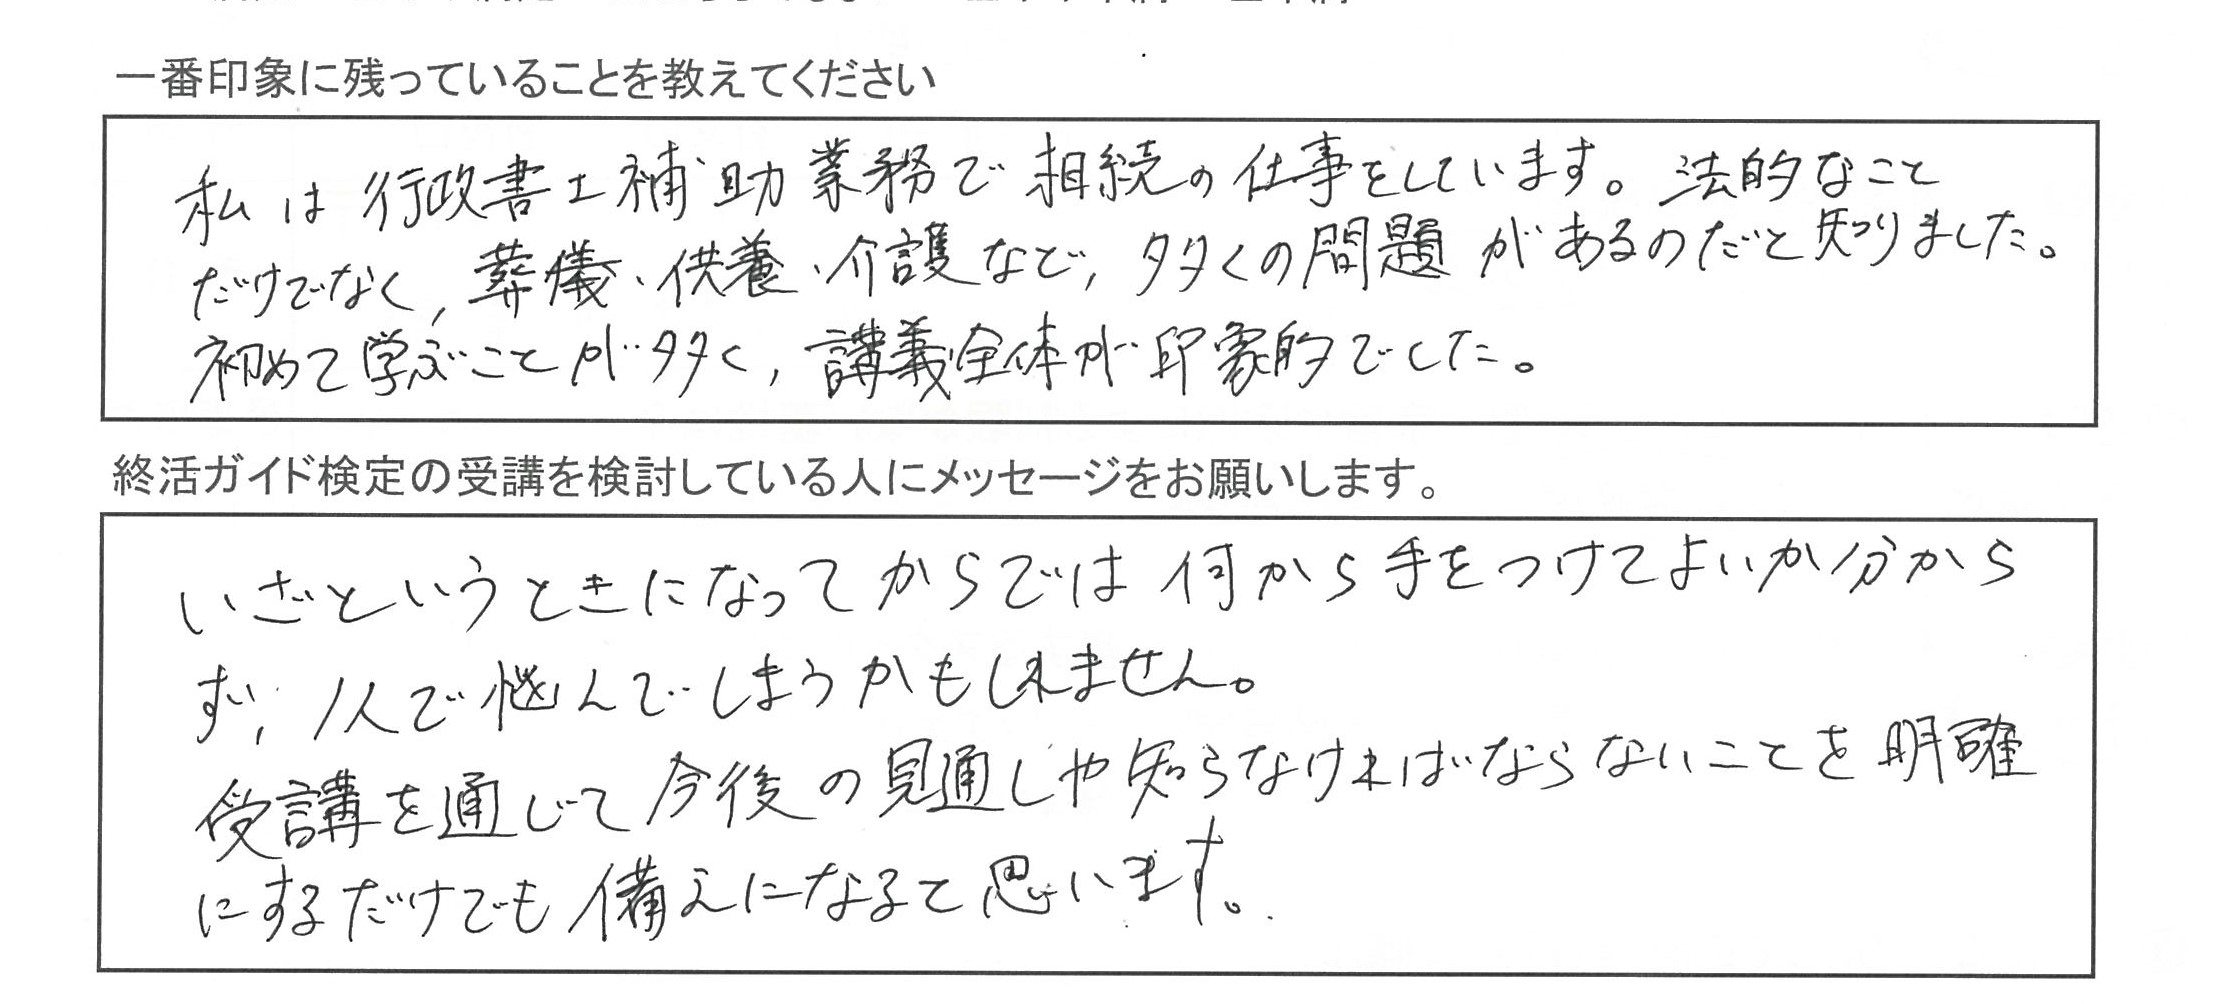 一番印象に残っていることを教えてください
私は行政書士補助業務で相続の仕事をしています。法的なこと
だけでなく,葬儀、供養、介護など,多くの問題があるのだと知りました。
初めて学ぶことが多く,講義全体が印象的でした。
終活ガイド検定の受講を検討している人にメッセージをお願いします。
いざというときになってからでは何から手をつけてよいか分から
ず,1人で悩んでしまうかもしれません。
受講を通じて今後の見通しや知らなければならないことを明確
にするだけでも備えになると思います。